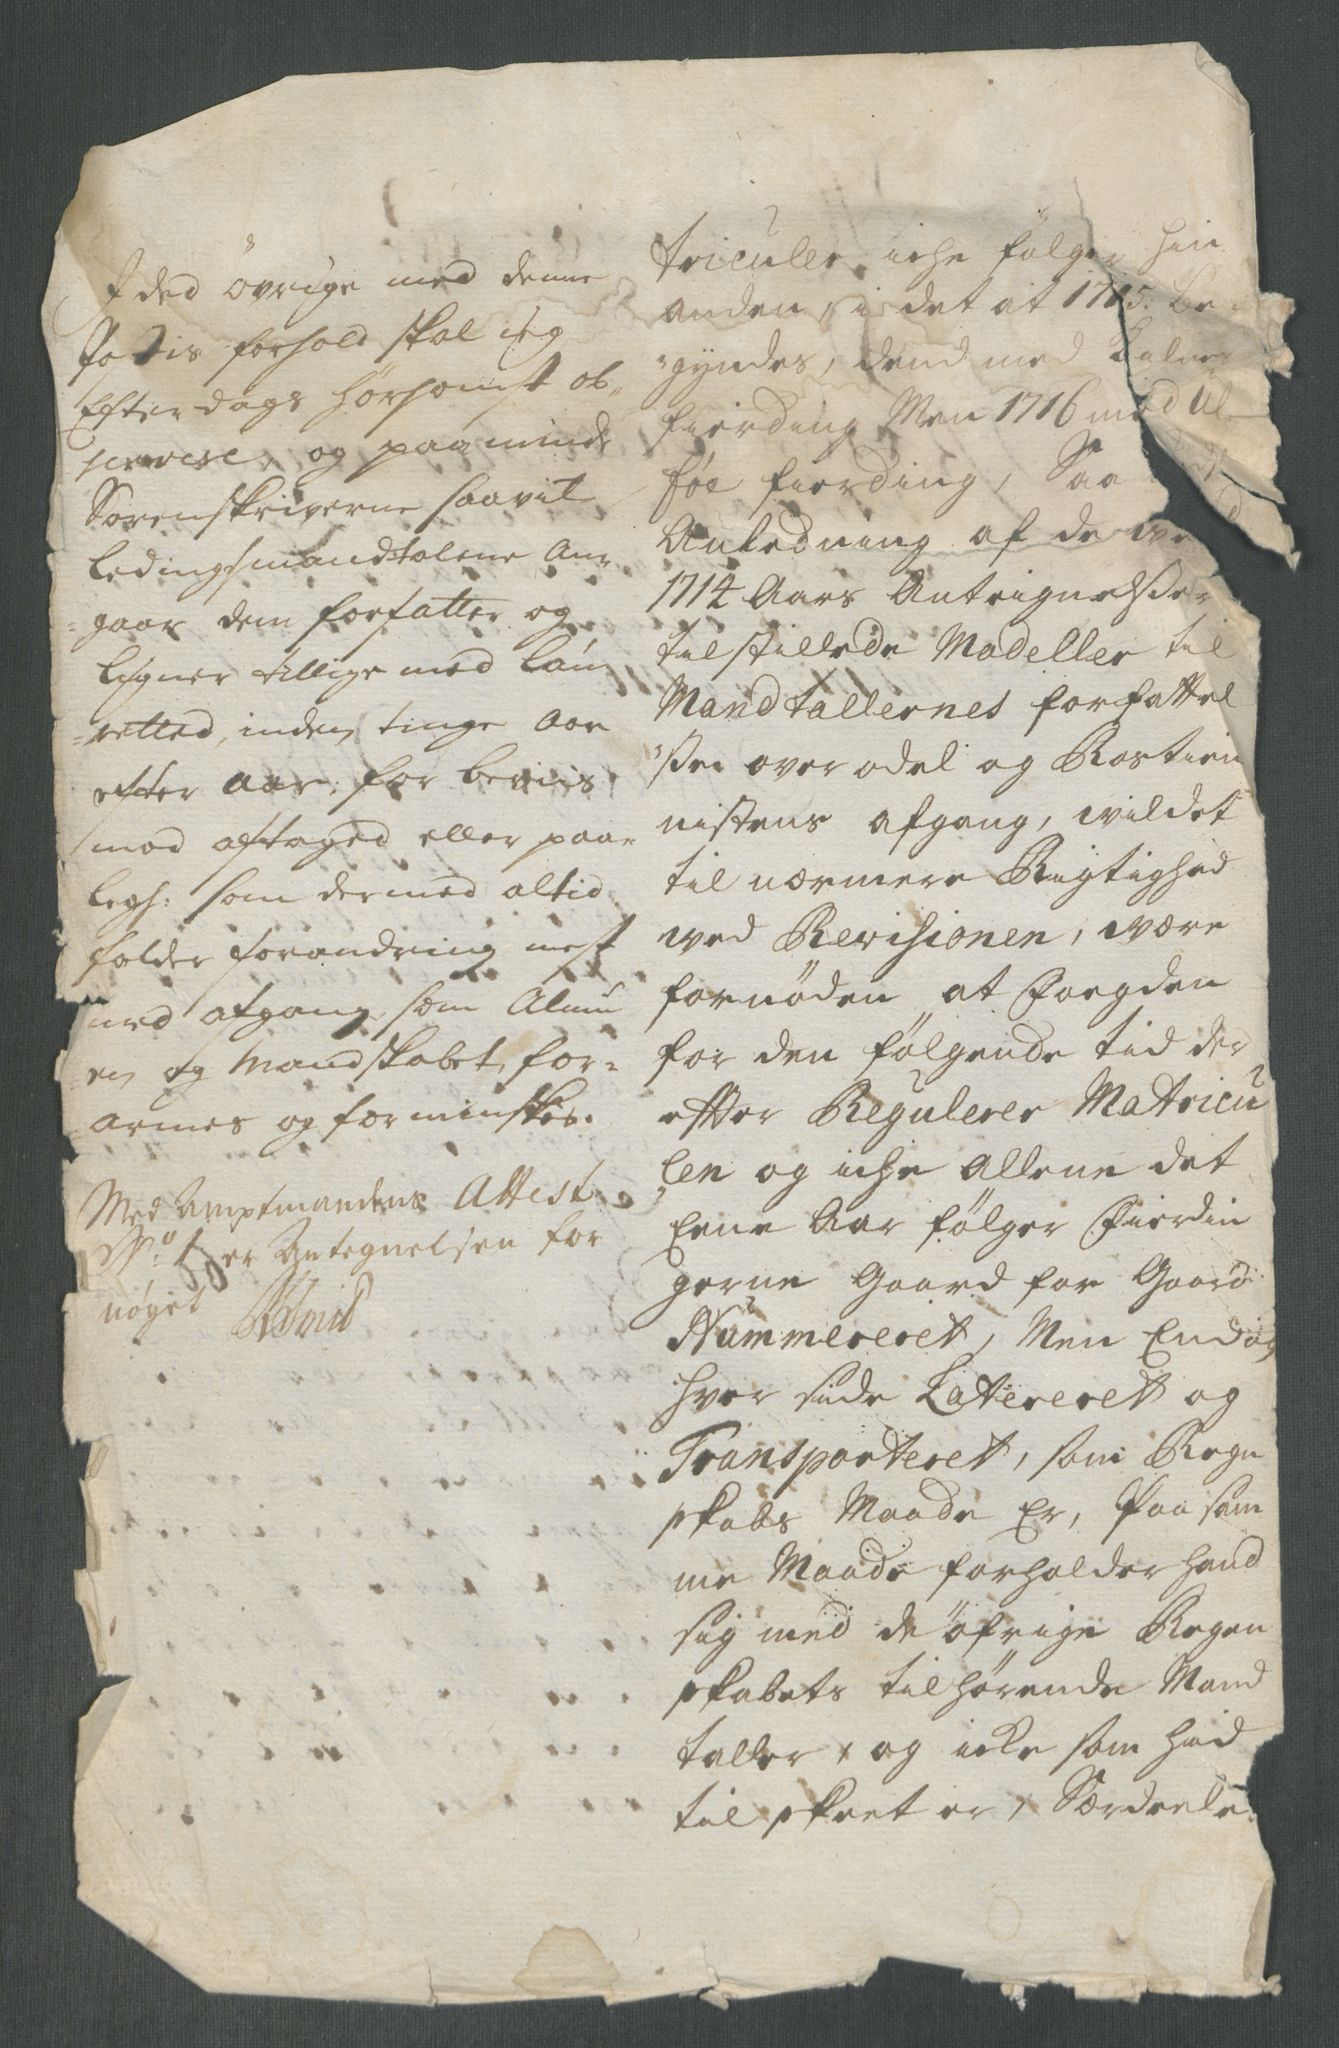 I ded övrige med denne
Postis forhold skal ieg
Efterdags hørsomst ob„
serverc, og paaminde
Sorenskriverne saavit
Ledingsmandtalene An„
gaar dem forfatter og
ligner tillige med Laug
retted, inden tinge Aar
efter Aar, for beviis
mod aftaged eller paa„
legh: som dermed altid
falder forandring mest
ved afgang som Almu
en og Mandskabet for„
armes og forminskes.
Med Amptmandens Attest
No: 1 er Antegnelsen for
nøyet
triculer iche følger hin
anden, i det at 1715. Be
gyndes, dend med
fierding Men 1716 med Ul
føe fierding, Saa
Anledning af de ved
1714 Aars Anteignelser
tilstillede Modeller til
Mandtallernes forfattel
sen over odel og Rostien
nistens afgang, vil det
til nærmere Rigtighed
ved Revisionen, være
fornöden at Foegden
for den følgende tid der
effter Regulerer Matricu
len og iche allene det
Eene Aar følger Fierdin
gerne Gaard for Gaard
Nummereret, Men Endog
hver side Latereret og
Transporteret, som Regn
skabs Maade Er, Paa sam
me Maade forholder hand
sig med de öfrige Regen
skabets tilhørende Mand
taller, og icke som hid
til skeet er, Særdeele